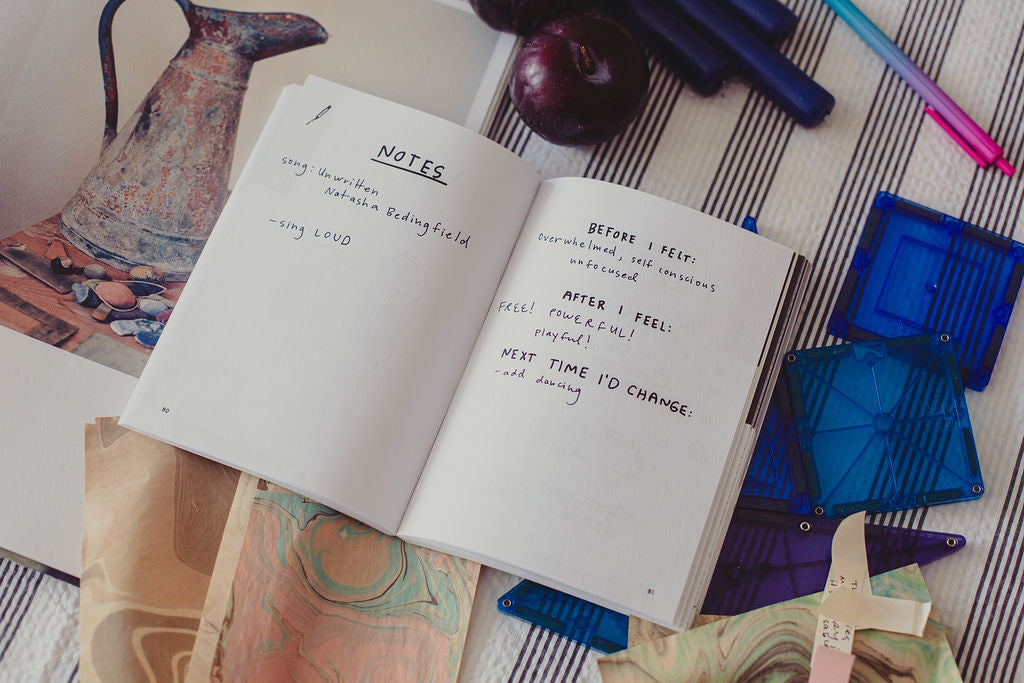 NOTES
song: Unwritten
Natasha Bedingfield
- sing LOUD
80
BEFORE I FELT:
overwhelmed, self conscious
unfocused
AFTER I FEEL:
FREE! POWERFUL!
playful!
NEXT TIME I'D CHANGE:
- add dancing
81